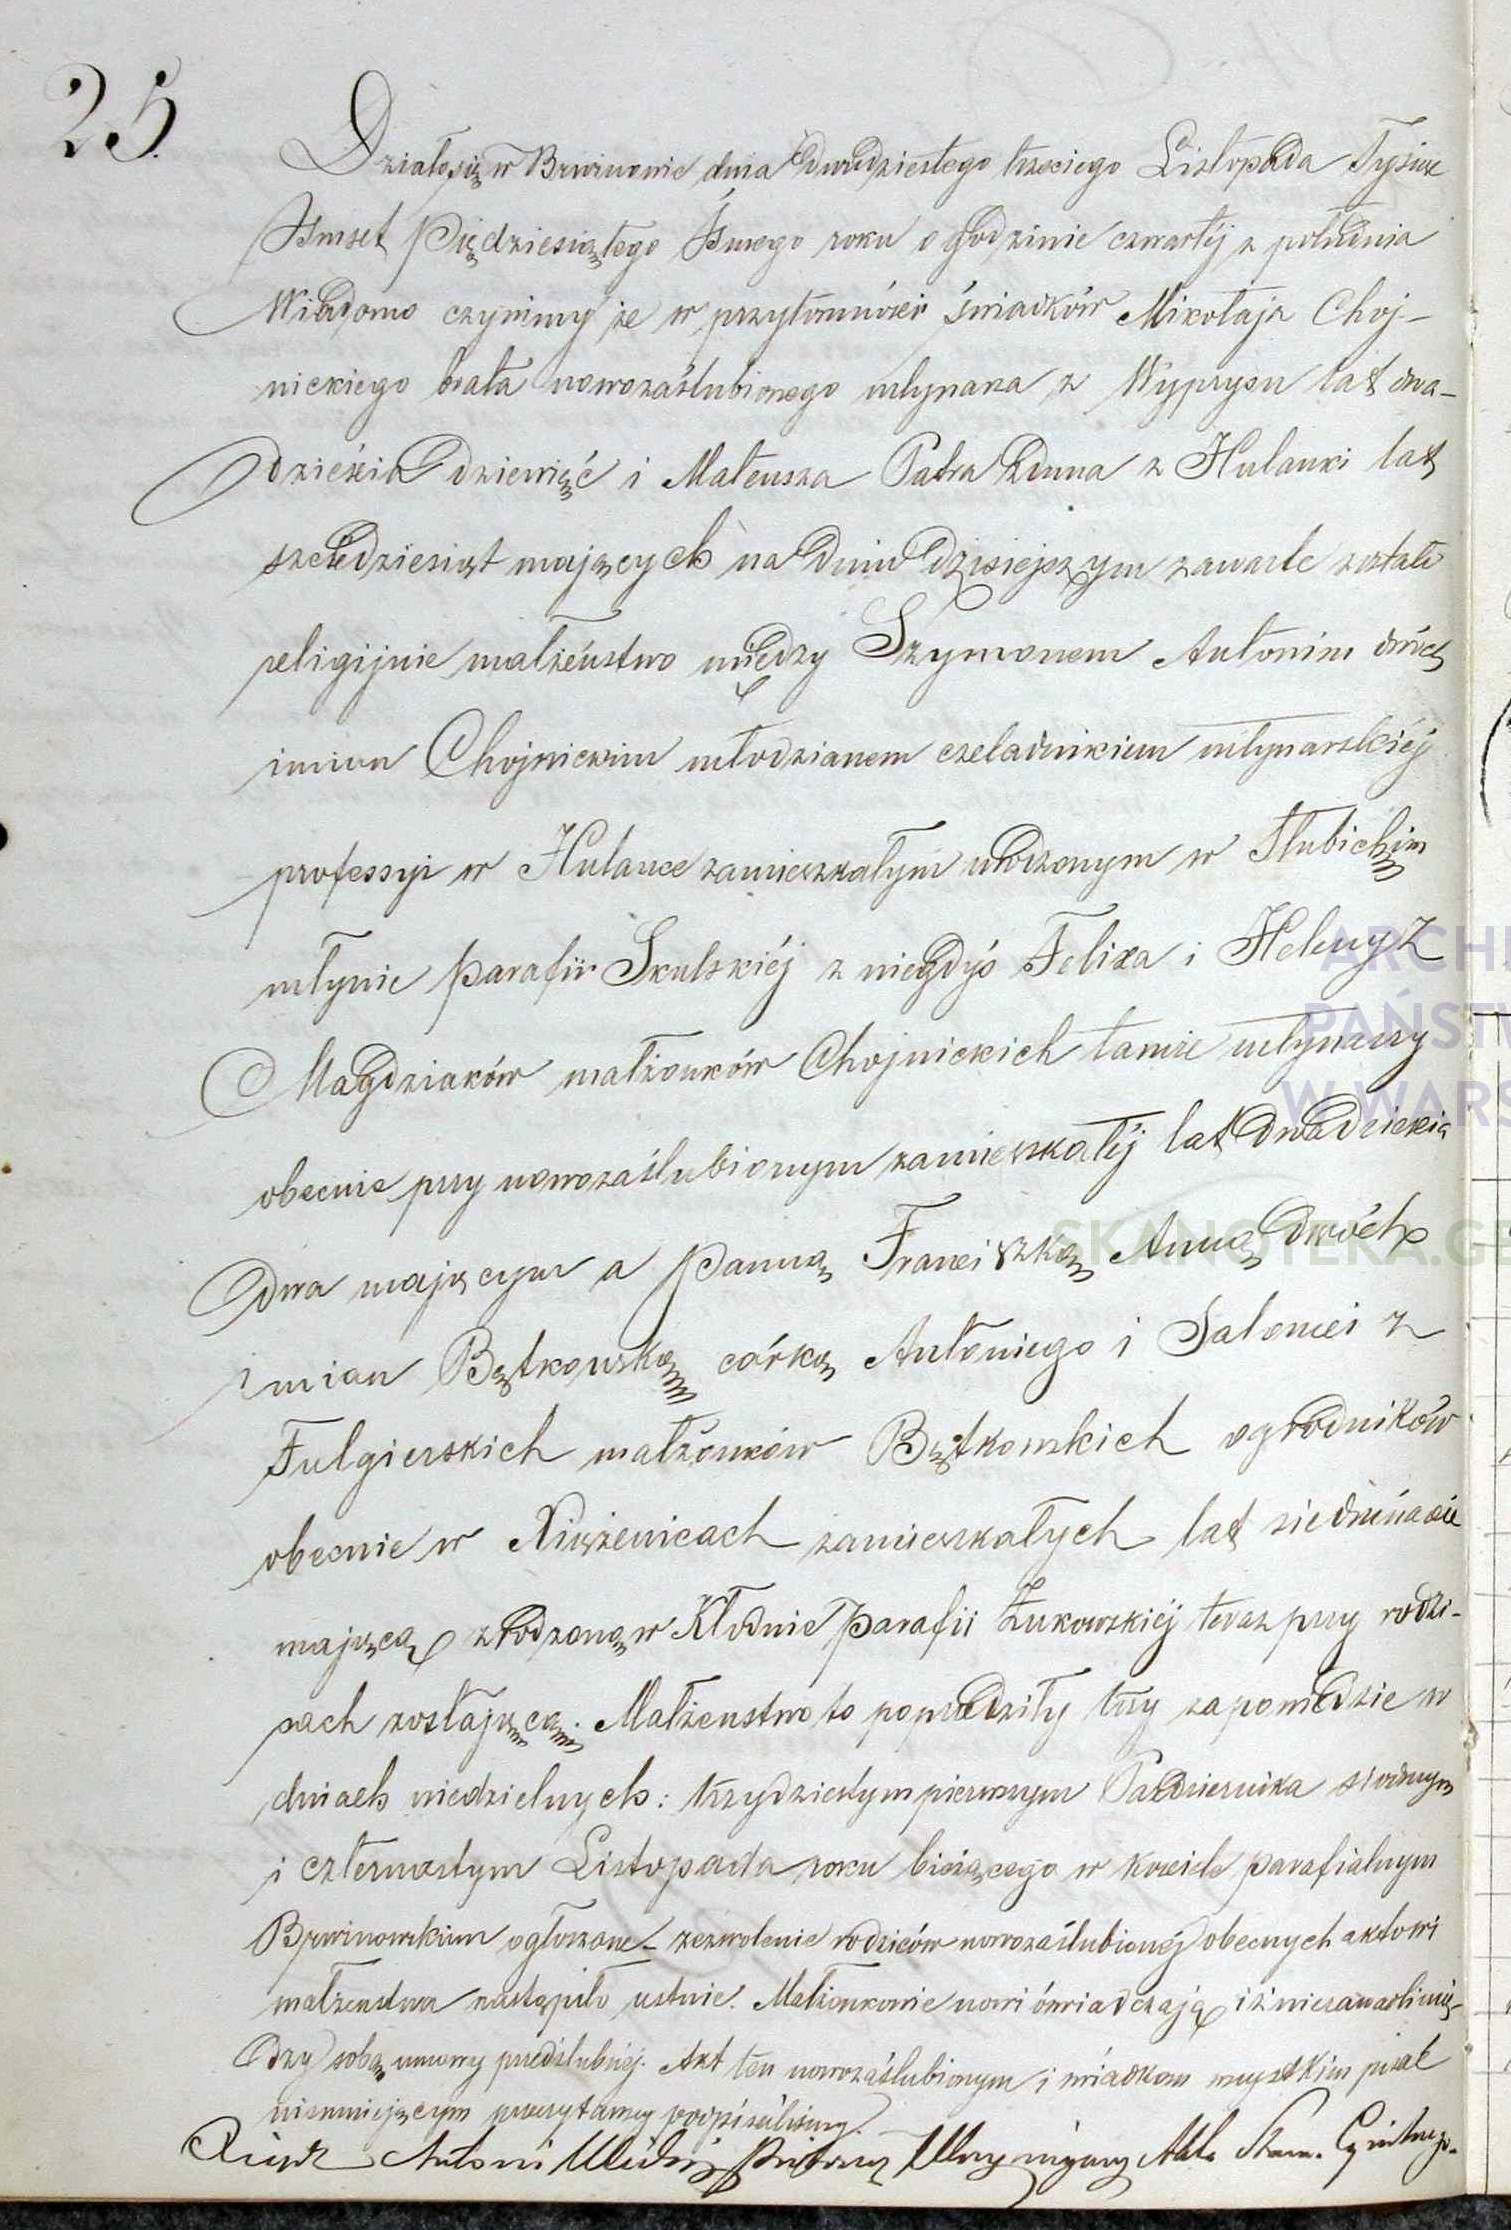 25.
Działo się w Brwinowie dnia dwudziestego trzeciego Listopada Tysiąc
Ośmset Pięćdziesiątego Ósmego roku o godzinie czwartej z południa
Wiadomo czynimy że w przytomności świadków Mikołaja Choj-
nickiego brata nowozaślubionego młynarza z Wyprysu lat dwa-
dzieścia dziewięć i Mateusza Patra Zduna z Hulanki lat
sześćdziesiąt mających na dniu dzisiejszym zawarte zostało
religijnie małżeństwo między Szymonem Antonim dwóch
imion Chojnickim młodzianem czeladnikiem młynarskiéj
professyi w Hulance zamieszkałym urodzonym w Słubickim
młynie parafii Skulskiéj z niegdyś Felixa i Heleny z
Magdziaków małżonków Chojnickich tamże młynarzy
obecnie przy nowozaślubionym zamieszkałéj lat dwadzieścia
dwa mającym a Panną Franciszką Anną dwóch
imion Bętkowską córką Antoniego i Salomei z
Fulgierskich małżonków Bętkowskich ogrodników
obecnie w Xiążenicach zamieszkałych lat siedmnaście
mającą zrodzoną w Kłodnie Parafii Żukowskiéj teraz przy rodzi-
cach zostającą. Małżeństwo to poprzedziły trzy zapowiedzie w
dniach niedzielnych: trzydziestym pierwszym Października siódmym
i czternastym Listopada roku bieżącego w kościele parafialnym
Brwinowskim ogłoszone zezwolenie rodziców nowozaślubionéj obecnych aktowi
małżeństwa nastąpiło ustnie. Małżonkowie nowi oświadczają iż niezawarli mię-
dzy sobą umowy przedślubnéj. Akt ten nowozaślubionym i świadkom wszystkim pisać
nieumiejącym przeczytany podpisaliśmy.
Xiądz Antoni Akta Stanu Cywilnego
ARCHI
PAŃSTW
W WARS
SKANOTEKA.GE